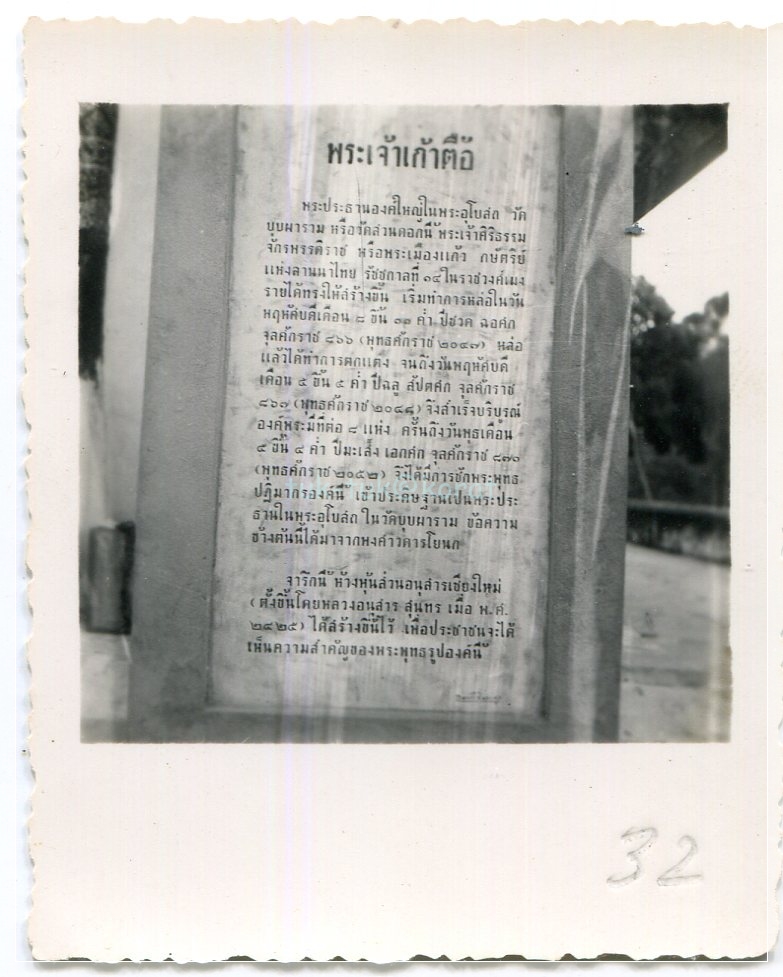 พระเจ้าเก้าตื้อ
พระประธานองค์ใหญ่ในพระอุโบสถ วัด
บุบผาราม หรือวัดสวนดอกนี้ พระเจ้าศิริธรรม
จักรพรรดิราช หรือพระเมืองแก้ว กษัตริย์
แห่งลานนาไทย รัชชกาลที่ ๑๔ ในราชวงค์เมง
รายได้ทรงให้สร้างขึ้น เริ่มทำการหล่อในวัน
พฤหัศบดีเดือน ๘ ขึ้น ๑๑ ค่ำ ปีชวด ฉอศก
จุลศักราช ๘๖๖ (พุทธศักราช ๒๐๔๗) หล่อ
แล้วได้ทำการตกแต่ง จนถึงวันพฤหัศบดี
เดือน ๕ ขึ้น ๕ ค่ำ ปีฉลู สัปตศก จุลศักราช
๘๖๗ (พุทธศักราช ๒๐๔๘) จึงสำเร็จบริบูรณ์
องค์พระมีที่ต่อ ๘ แห่ง ครั้นถึงวันพุธเดือน
๕ ขึ้น ๔ ค่ำ ปีมะเส็ง เอกศก จุลศักราช ๘๗๐
(พุทธศักราช ๒๐๕๒) จึงได้มีการชักพระพุทธ
ปฏิมากรองค์นี้ เข้าประดิษฐานเป็นพระประ
ธานในพระอุโบสถ ในวัดบุบผาราม ข้อความ
ข้างต้นนี้ได้มาจากพงศาวดารโยนก
จารึกนี้ ห้างหุ้นส่วนอนุสารเชียงใหม่
(ตั้งขึ้นโดยหลวงอนุสาร สุนทร เมื่อ พ.ศ.
๒๔๒๕) ได้สร้างขึ้นไว้ เพื่อประชาชนจะได้
เห็นความสำคัญของพระพุทธรูปองค์นี้
32